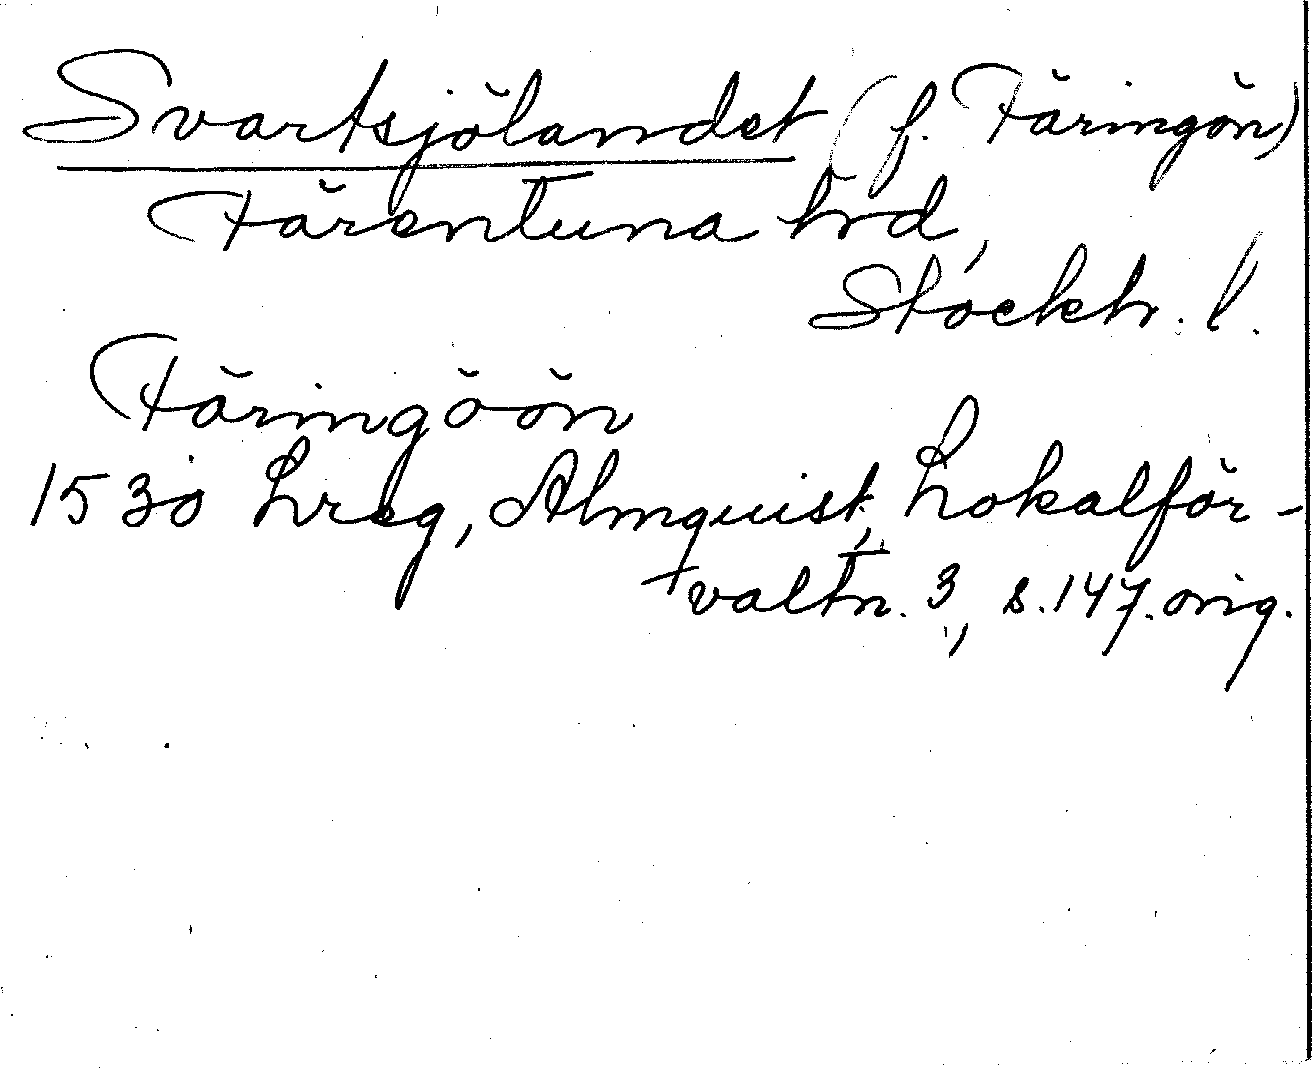 Svartsjölandet (f. Färingön)
Färentuna hrd,
Stockh. l.
Färingöön
1530 Lreg, Almquist, Lokalför-
valtn. 3, s. 147. orig.